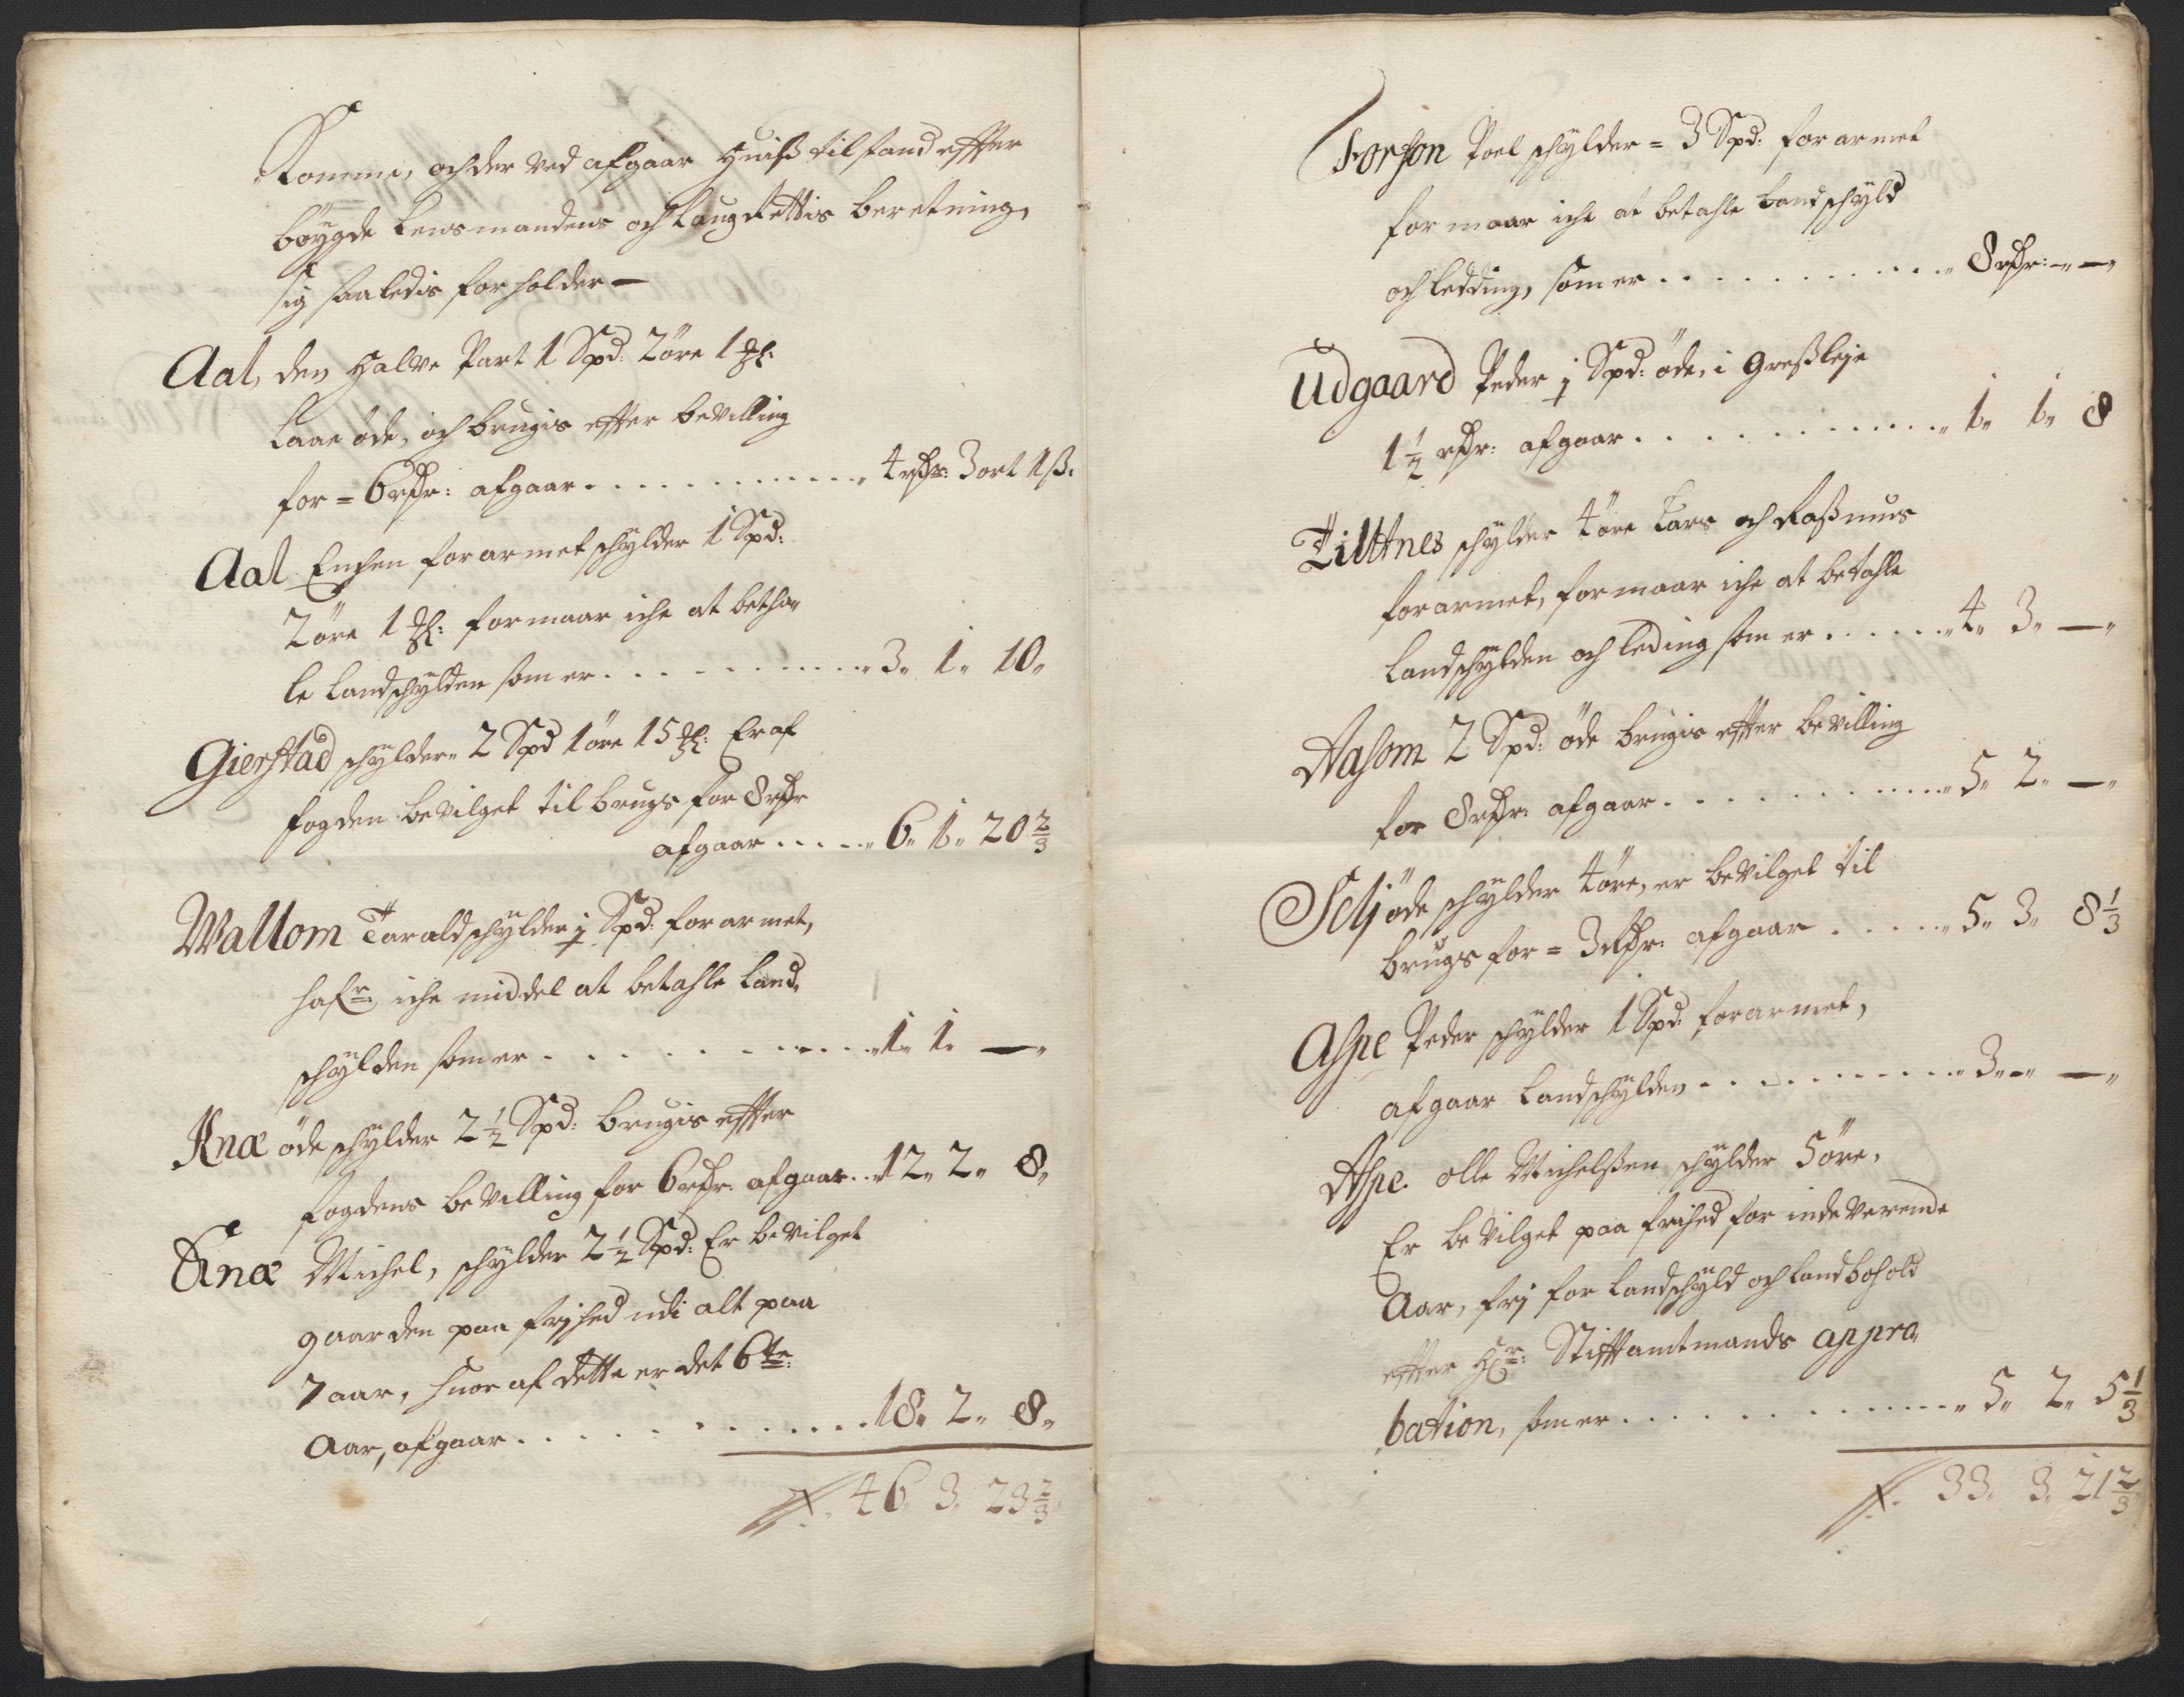 Komme, och der ved afgaar Huis tilstand effter
bøygde Lensmandens och Laug Rettis beretning,
sig saaledis forholder —
Aal, den Halve Part 1 Spd: 2 øre 1 ℔:
Laae øde, och brugis effter bevilling
for = 6 rdr: afgaar . . . . . . . . . . 4 rdr: 3 ort 1 ß.
Aal Enchen forarmet schylder 1 Spd:
2 øre 1 ℔: formaar iche at betha-
le landschylden som er . . . . . . . . . 3„ 1„ 10„
Gierstad schylder„ 2 Spd 1 øre 15 ℔: Er af
fogden bevilget til brugs for 8 rdr
afgaar . . . . . 6„ 1„ 20 2/3
Wallom Tarald schylder 1 Spd: forarmet,
hafr: iche middel at betahle land-
schylden som er . . . . . . . . . . 1„ 1„ —„
Knæ øde schylder 2 1/2 Spd: brugis effter
fogdens bevilling for 6 rdr. afgaar . . 12„ 2„ 8„
Knæ Michel, schylder 2 1/2 Spd: Er bevilget
gaarden paa frjhed udi alt paa
7 aar, huor af dette er det 6te:
Aar, afgaar . . . . . . . . . . . 18„ 2„ 8„
46„ 3„ 23 2/3
Forson Poel schylder = 3 Spd: forarmet
formaar iche at betahle Landschyld
och Ledding, som er . . . . . . . . . . 8 rdr: „—„
Udgaard Peder 1 Spd: øde, i Gressleje
1 1/2 rdr: afgaar . . . . . . . . . . . . 1„ 1„ 8
Tilttnes schylder 4 øre Lars och Rasmus
forarmet, formaar iche at betahle
Landschylden och Leding som er . . . . . . 4„ 3„ —„
Aasom 2 Spd: øde brugis effter bevilling
for 8 rdr: afgaar . . . . . . . . . . . 5„ 2„ —„
Selj øde schylder 4 øre, er bevilget til
brugs for = 3 rdr: afgaar . . . . . 5„ 3„ 8 1/3
Aspe Peder schylder 1 Spd: forarmet,
afgaar Landschylden . . . . . . . . . . 3„ „ —„
Aspe. olle Michelssen schylder 5 øre,
Er bevilget paa frihed for indeverende
Aar, frj for Landschyld och Landbohold
effter Hr: Stifftamtmands appro-
bation, som er . . . . . . . . . . . . „ 5„ 2„ 5 1/3
33„ 3„ 21 2/3